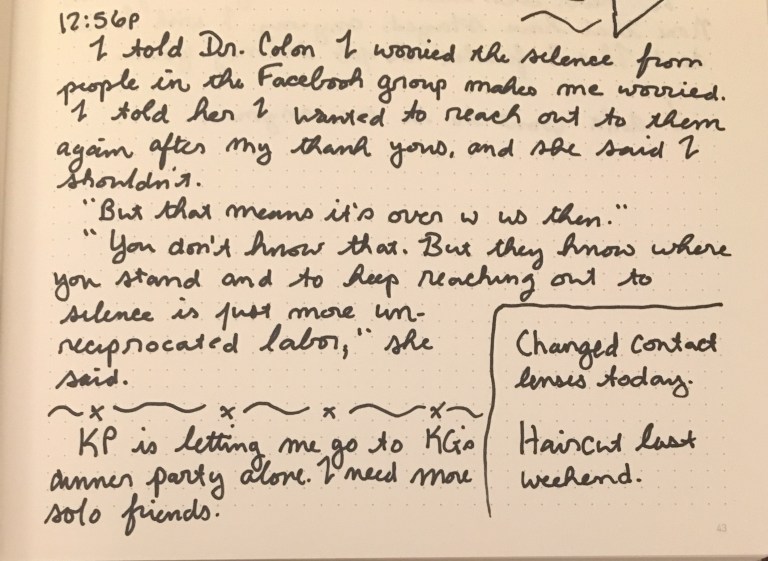 12:56p
I told Dr. Colon I worried the silence from
people in the Facebook group makes me worried.
I told her I wanted to reach out to them
again after my thank yous, and she said I
shouldn't.
"But that means it's over w us then."
"You don't know that. But they know where
you stand and to keep reaching out to
silence is just more un-
reciprocated labor," she
said.
KP is letting me go to KG's
dinner party alone. I need more
solo friends.
Changed contact
lenses today.
Haircut last
weekend.